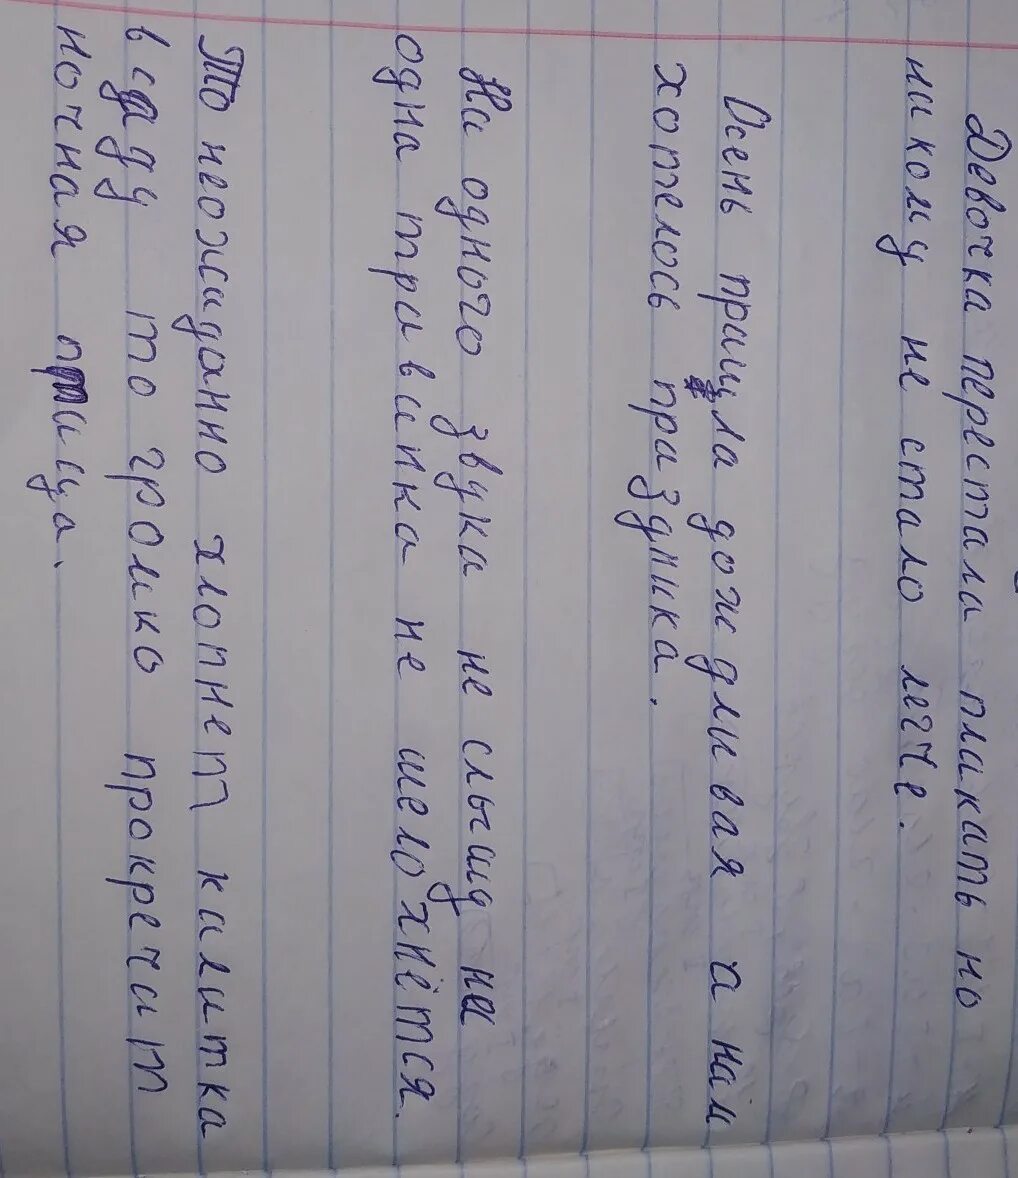 Девочка перестала плакать но
никому не стало легче.
Осень пришла дождливая а нам
хотелось праздника.
На одного звука не слышд на
одна травинка не шелохнётся.
То неожиданно хлопнет калитка
в саду то громко прокречит
ночная птица.